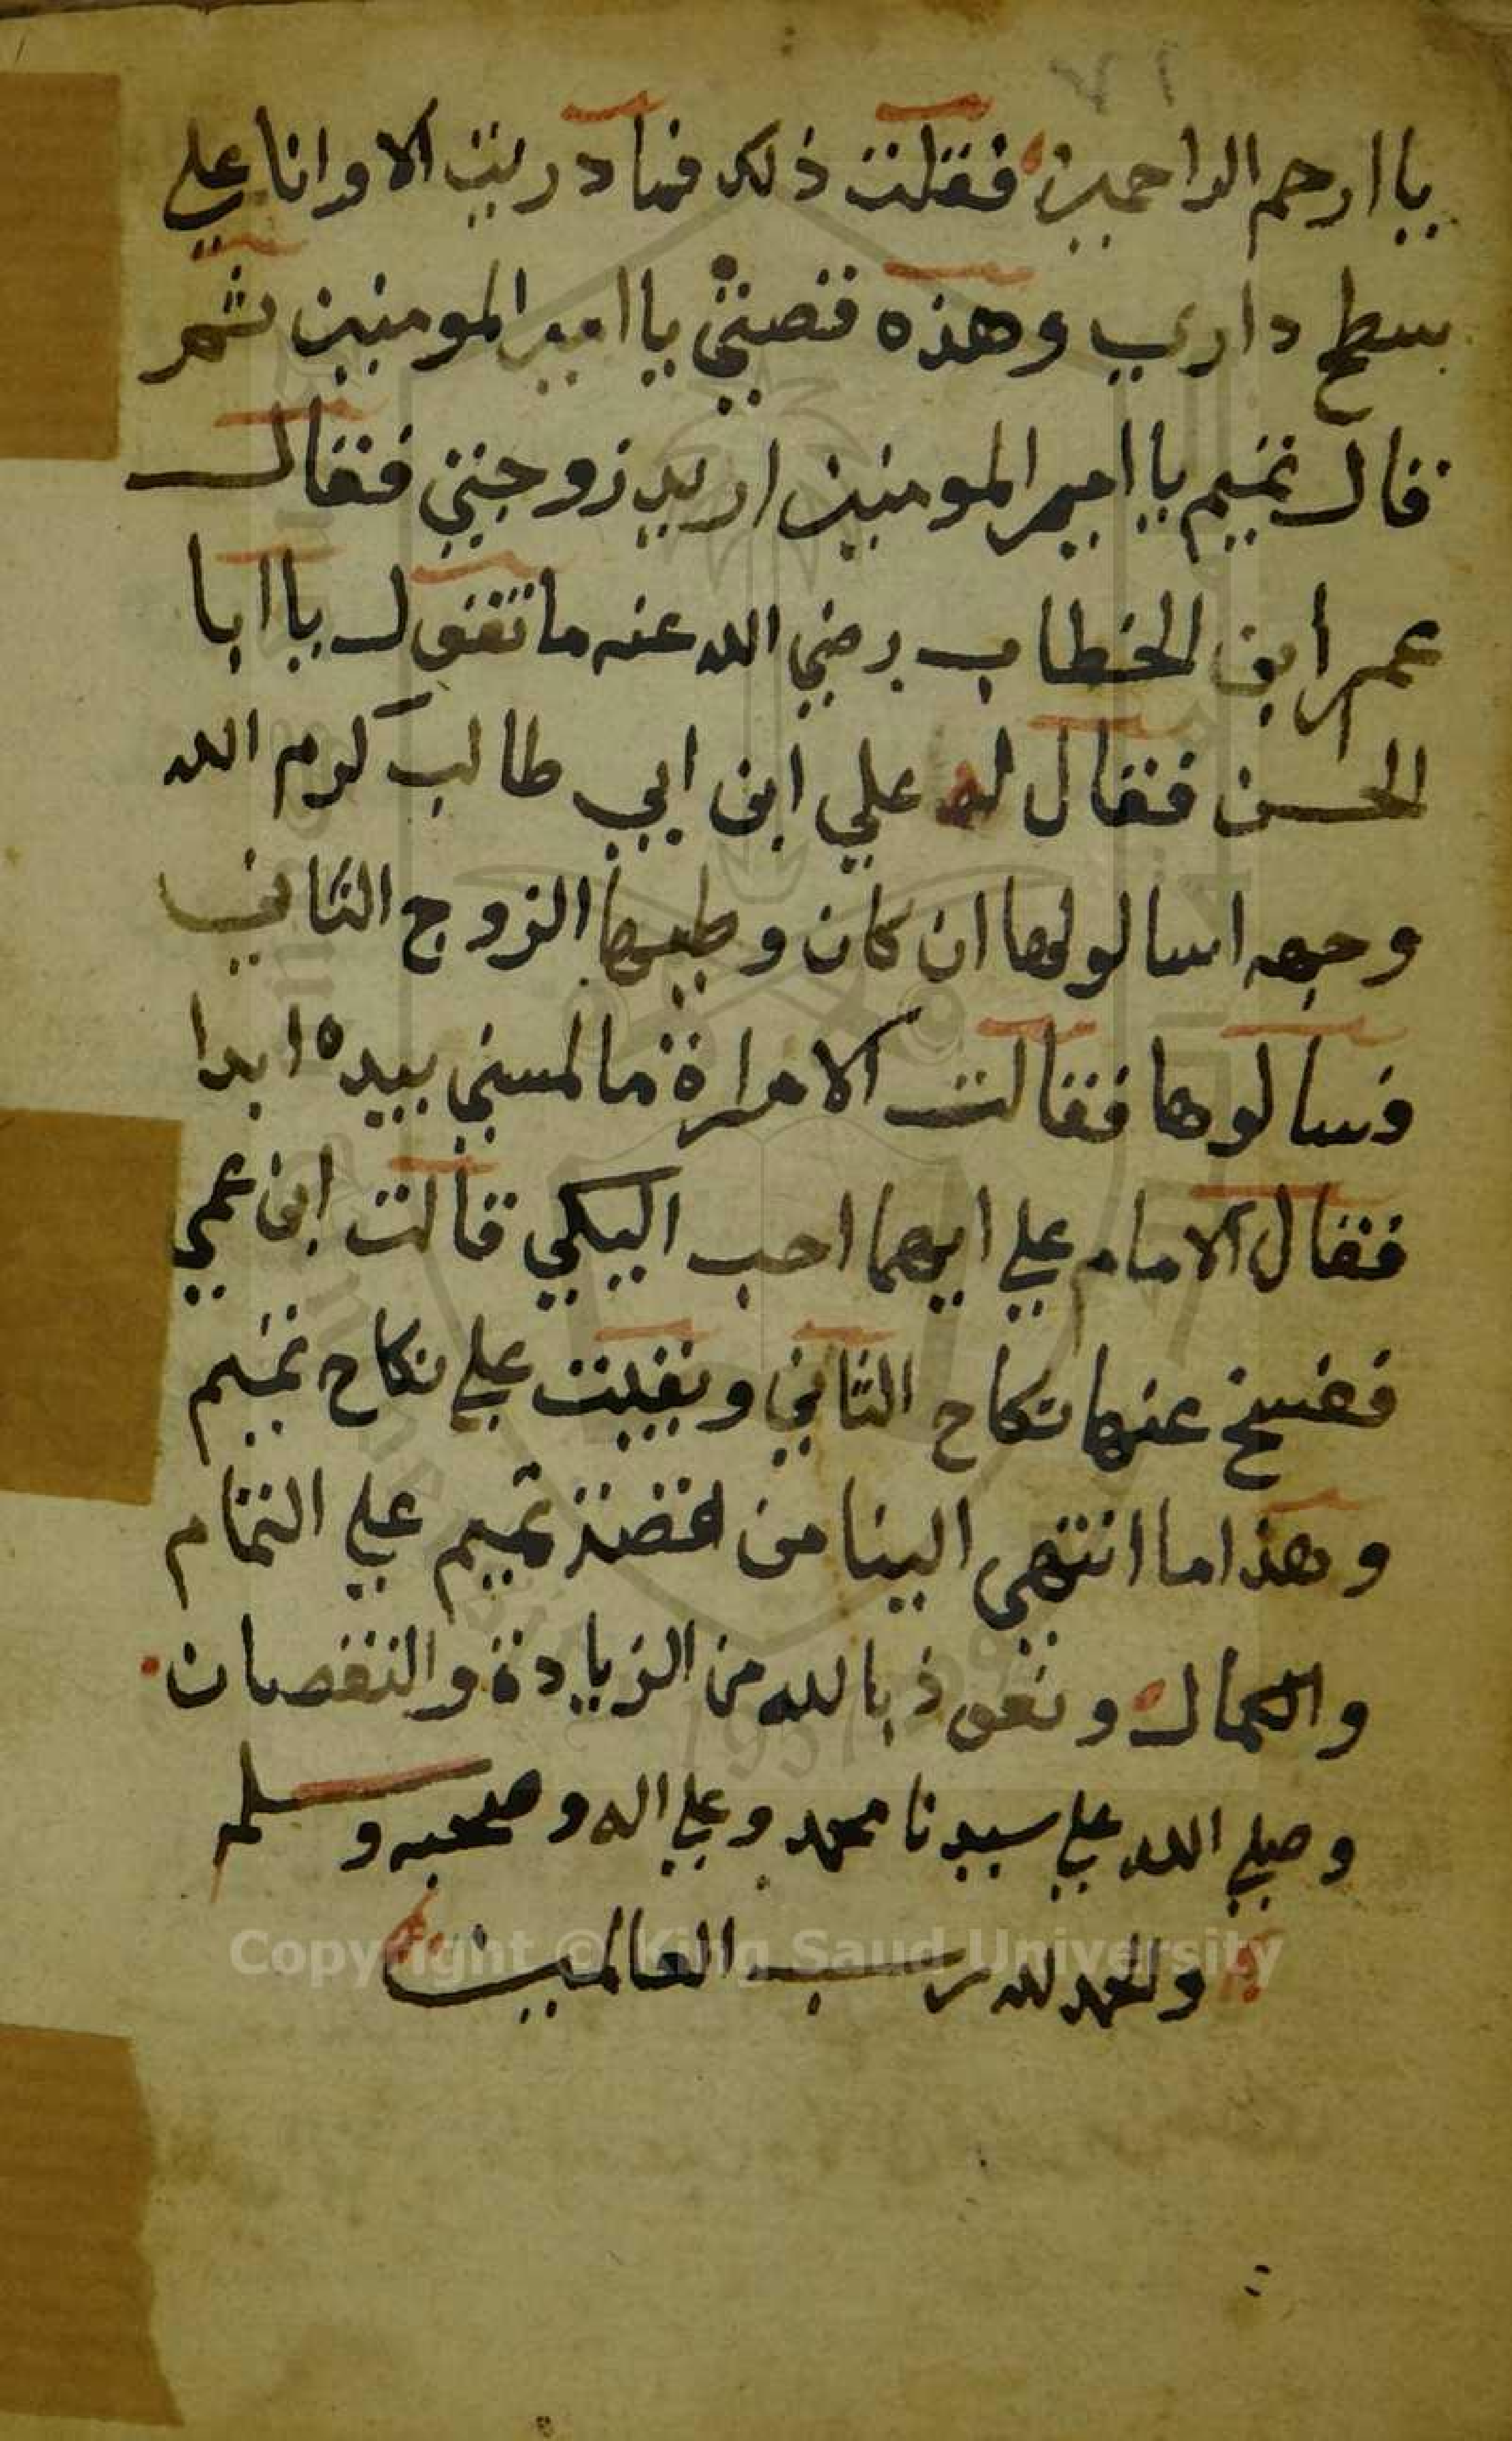 يا ارحم الراحمين فقلت ذلك فما دريت الا وانا علي
سطح داري وهذه قصتي يا امير المومنين ثم
قال تميم يا امير المومنين اريد زوجتي فقال
عمر ابن الخطاب رضي الله عنه ما تقول يا ابا
الحسن فقال له علي ابن ابي طالب كرم الله
وجهه اسالوها ان كان وطيها الزوج الثاني
فسالوها فقالت الامراة ما لمسني بيده ابدا
فقال الامام علي ايهما احب اليكي قالت ابن عمي
ففسخ عنها نكاح الثاني وبقيت علي نكاح تميم
وهذا ما انتهي الينا من قصة تميم علي التمام
والكمال ونعوذ بالله من الزيادة والنقصان
وصلي الله علي سيدنا محمد وعلي اله وصحبه وسلم
والحمد لله رب العالمين
Copyright © King Saud University
1957